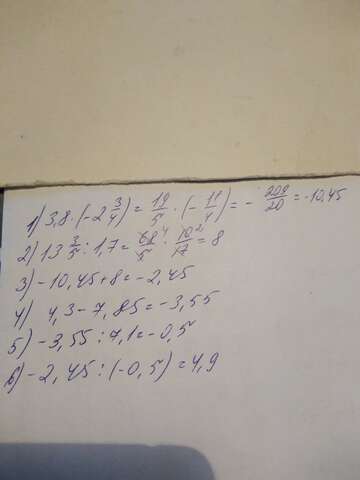 1) 3,8 · (-2 3/4) = 19/5 · (- 11/4) = - 209/20 = -10,45
2) 13 3/5 : 1,7 = 68 4/5 · 10 2/17 = 8
3) -10,45 + 8 = -2,45
4) 4,3 - 7,85 = -3,55
5) -3,55 : 7,1 = -0,5
6) -2,45 : (-0,5) = 4,9